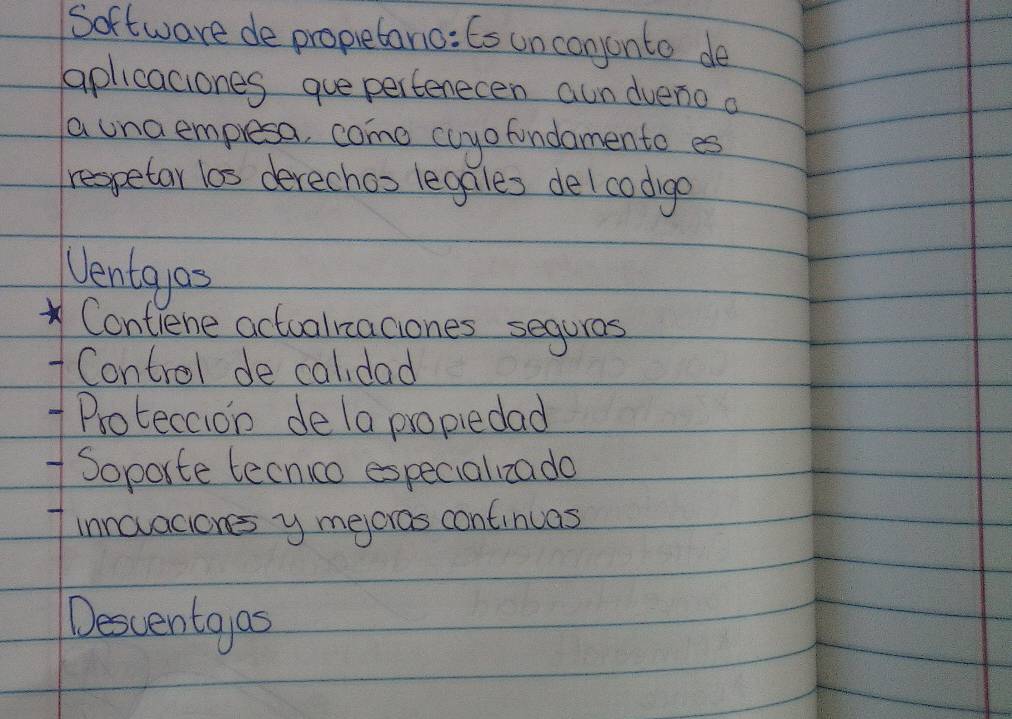 Software de propietario: Es un conjunto de
aplicaciones que pertenecen a un dueño o
a una empresa. como cuyo fundamento es
respetar los derechos legales del codigo
Ventajas
* Contiene actualizaciones seguras
- Control de calidad
- Protección de la propiedad
- Soporte tecnico especializado
- innovaciones y mejoras continuas
Desventajas